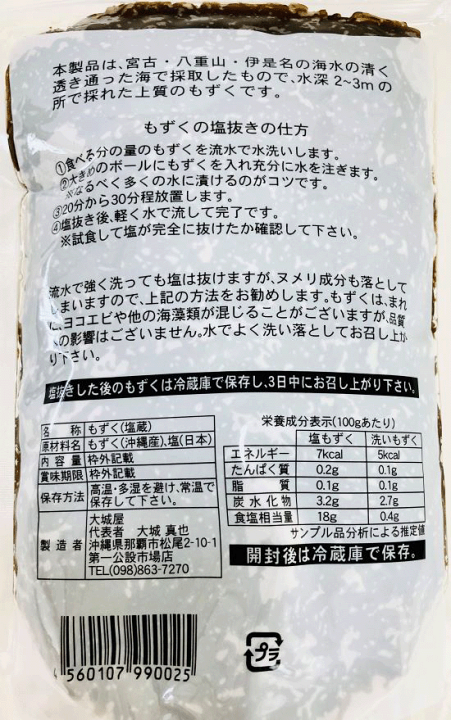 本製品は、宮古・八重山・伊是名の海水の清く
透き通った海で採取したもので、水深2~3mの
所で採れた上質のもずくです。
もずくの塩抜きの仕方
①食べる分の量のもずくを流水で水洗いします。
②大きめのボールにもずくを入れ充分に水を注ぎます。
※なるべく多くの水に漬けるのがコツです。
③20分から30分程放置します。
④塩抜き後、軽く水で流して完了です。
※試食して塩が完全に抜けたか確認して下さい。
流水で強く洗っても塩は抜けますが、ヌメリ成分も落として
しまいますので、上記の方法をお勧めします。もずくは、まれ
に、ヨコエビや他の海藻類が混じることがございますが、品質
の影響はございません。水でよく洗い落としてお召し上が
り下さい。
塩抜きした後のもずくは冷蔵庫で保存し、3日中にお召し上がり下さい。
名称 もずく(塩蔵)
原材料名 もずく(沖縄産)、塩(日本)
内容量 枠外記載
賞味期限 枠外記載
保存方法 高温・多湿を避け、常温で
保存して下さい。
製造者 大城屋
代表者 大城 真也
沖縄県那覇市松尾2-10-1
第一公設市場店
TEL(098)863-7270
栄養成分表示(100gあたり)
塩もずく 洗いもずく
エネルギー 7kcal 5kcal
たんぱく質 0.2g 0.1g
脂質 0.1g 0.1g
炭水化物 3.2g 2.7g
食塩相当量 18g 0.4g
サンプル品分析による推定値
開封後は冷蔵庫で保存。
4 560107 990025
プラ